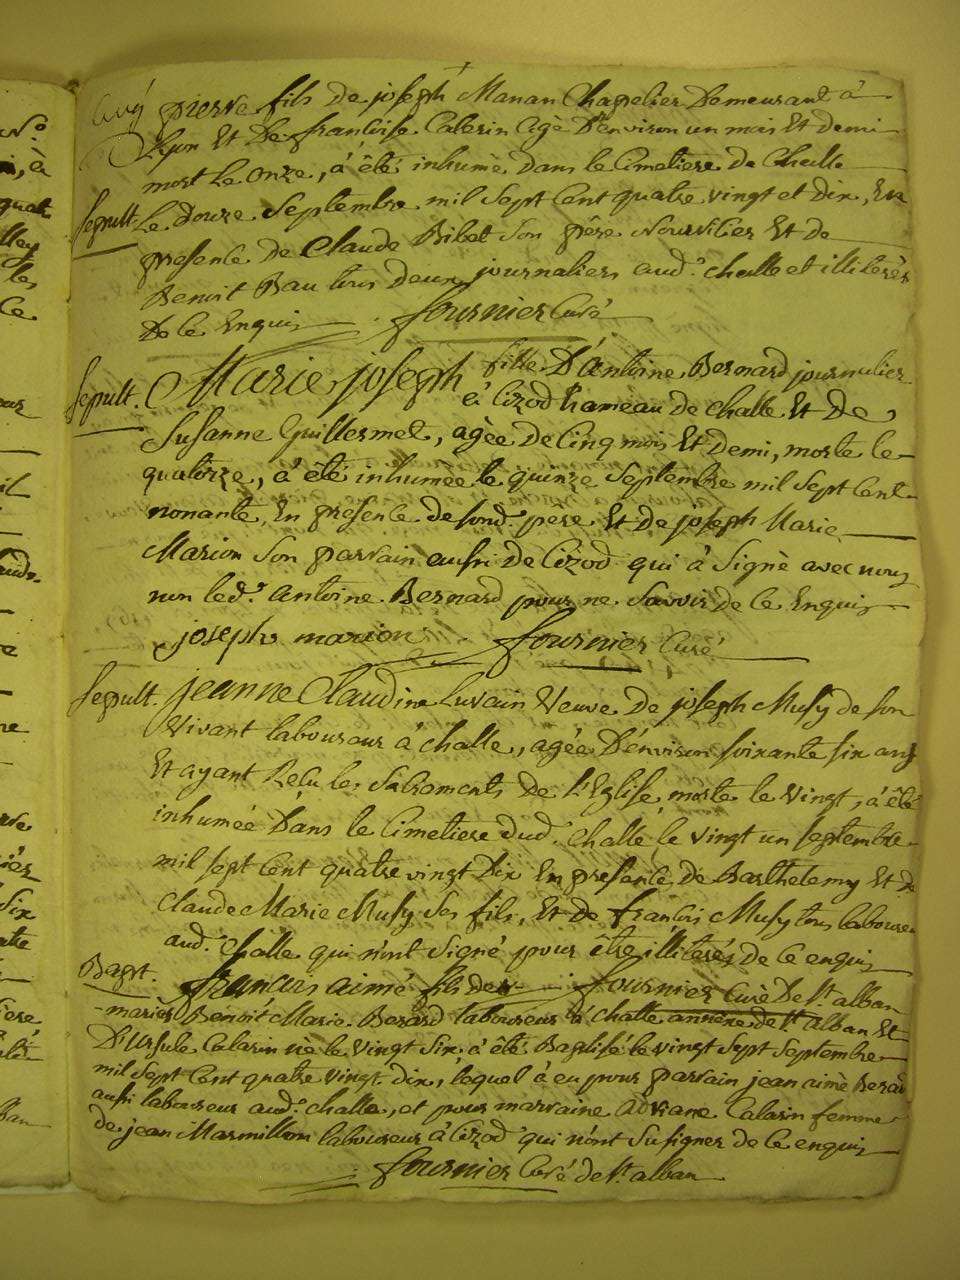 pierre fils de joseph Manan Chapelier Demeurant à
Lyon Et De françoise Calerin Agé D'environ un mois Et demi
mort Le onze, à été inhumé dans le Cimetiere de Challe
Sepult. Le douze Septembre mil Sept Cent quatre vingt et dix, En
presence de Claude Bibet Son père Nourricier Et de
Benoit Bau tous deux journaliers aud.t challe et illiterés
De ce Enquis fournier Curé
Sepult. Marie joseph fille D'antoine Bernard journalier
à Cizod hameau de Challe Et De
Susanne Guillermet, agée de Cinq mois Et Demi, morte le
quatorze, à été inhumée le quinze Septembre mil Sept Cent
nonante, En presence de sond. pere Et de joseph Marie
Marion Son parrain aussi de Cizod qui à Signé avec nous
non led.t antoine Bernard pour ne Savoir de ce Enquis
joseph marion fournier Curé
Sepult. jeanne Claudine Luvain Veuve De joseph Musy de son
Vivant laboureur à challe, agée D'environ soixante six ans
Et ayant Reçu les Sacrements De l'Eglise, morte le Vingt, à été
inhumée Dans le Cimetiere dud. Challe le vingt un septembre
mil sept Cent quatre vingt Dix En presence de Barthelemy Et de
Claude Marie Musy Ses fils, Et de françois Musy tous laboureurs
aud. Challe qui n'ont Signé pour être illiterés de ce enquis
Bapt. francois aimé fils de fournier Curé De St. alban
mariés Benoit Marie Berard laboureur à challe annexe de St. alban Et
D'Ursule Calarin né le Vingt Six à été Baptisé le vingt sept Septembre
mil Sept Cent quatre vingt dix, lequel à eu pour parrain jean aimé Berard
aussi laboureur aud.t challe, et pour marraine adriane Calarin femme
de jean Marmillon laboureur à Cizod qui n'ont Su signer de ce enquis
fournier Curé de St. alban